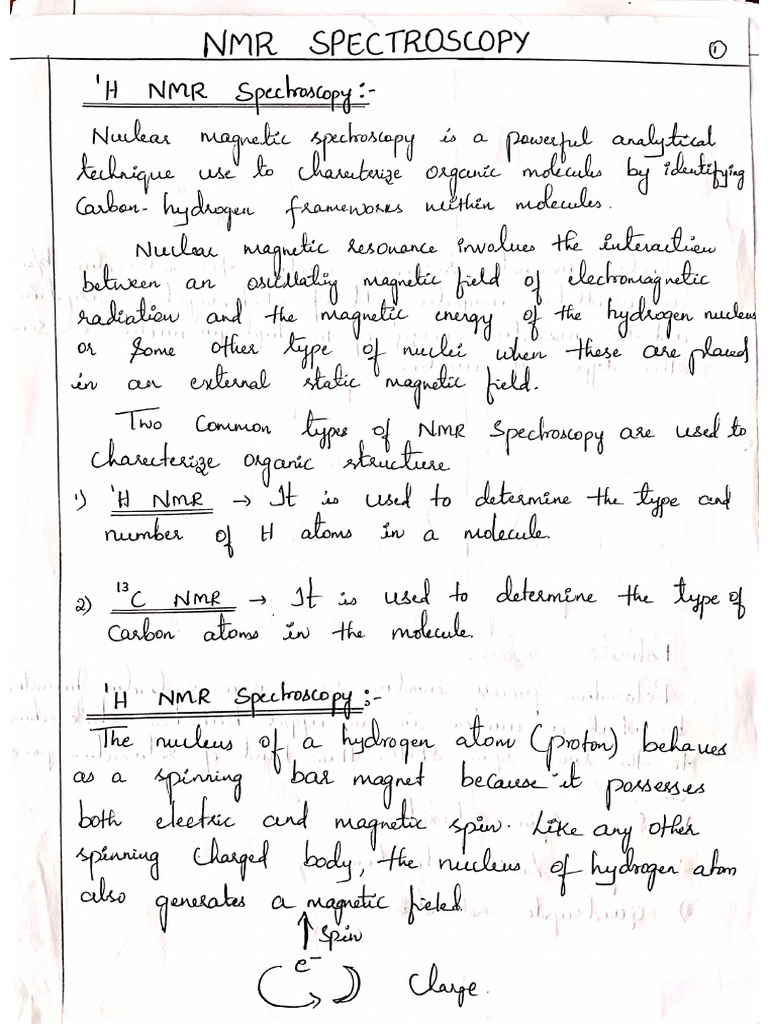 NMR SPECTROSCOPY
1
¹H NMR Spectroscopy:-
Nuclear magnetic spectroscopy is a powerful analytical
technique use to charecterize organic molecules by identifying
Carbon-hydrogen frameworks within molecules.
Nuclear magnetic resonance involves the interaction
between an oscillating magnetic field of electromagnetic
radiation and the magnetic energy of the hydrogen nucleus
or Some other type of nuclei when these are placed
in an external static magnetic field.
Two Common types of NMR Spectroscopy are used to
charecterize organic structure
1) ¹H NMR → It is used to determine the type and
number of H atoms in a molecule.
2) ¹³C NMR → It is used to determine the type of
Carbon atoms in the molecule.
¹H NMR Spectroscopy:-
The nucleus of a hydrogen atom (proton) behaves
as a spinning bar magnet because it possesses
both electric and magnetic spin. Like any other
spinning Charged body, the nucleus of hydrogen atom
also generates a magnetic field.
↑ Spin
e⁻
Charge.